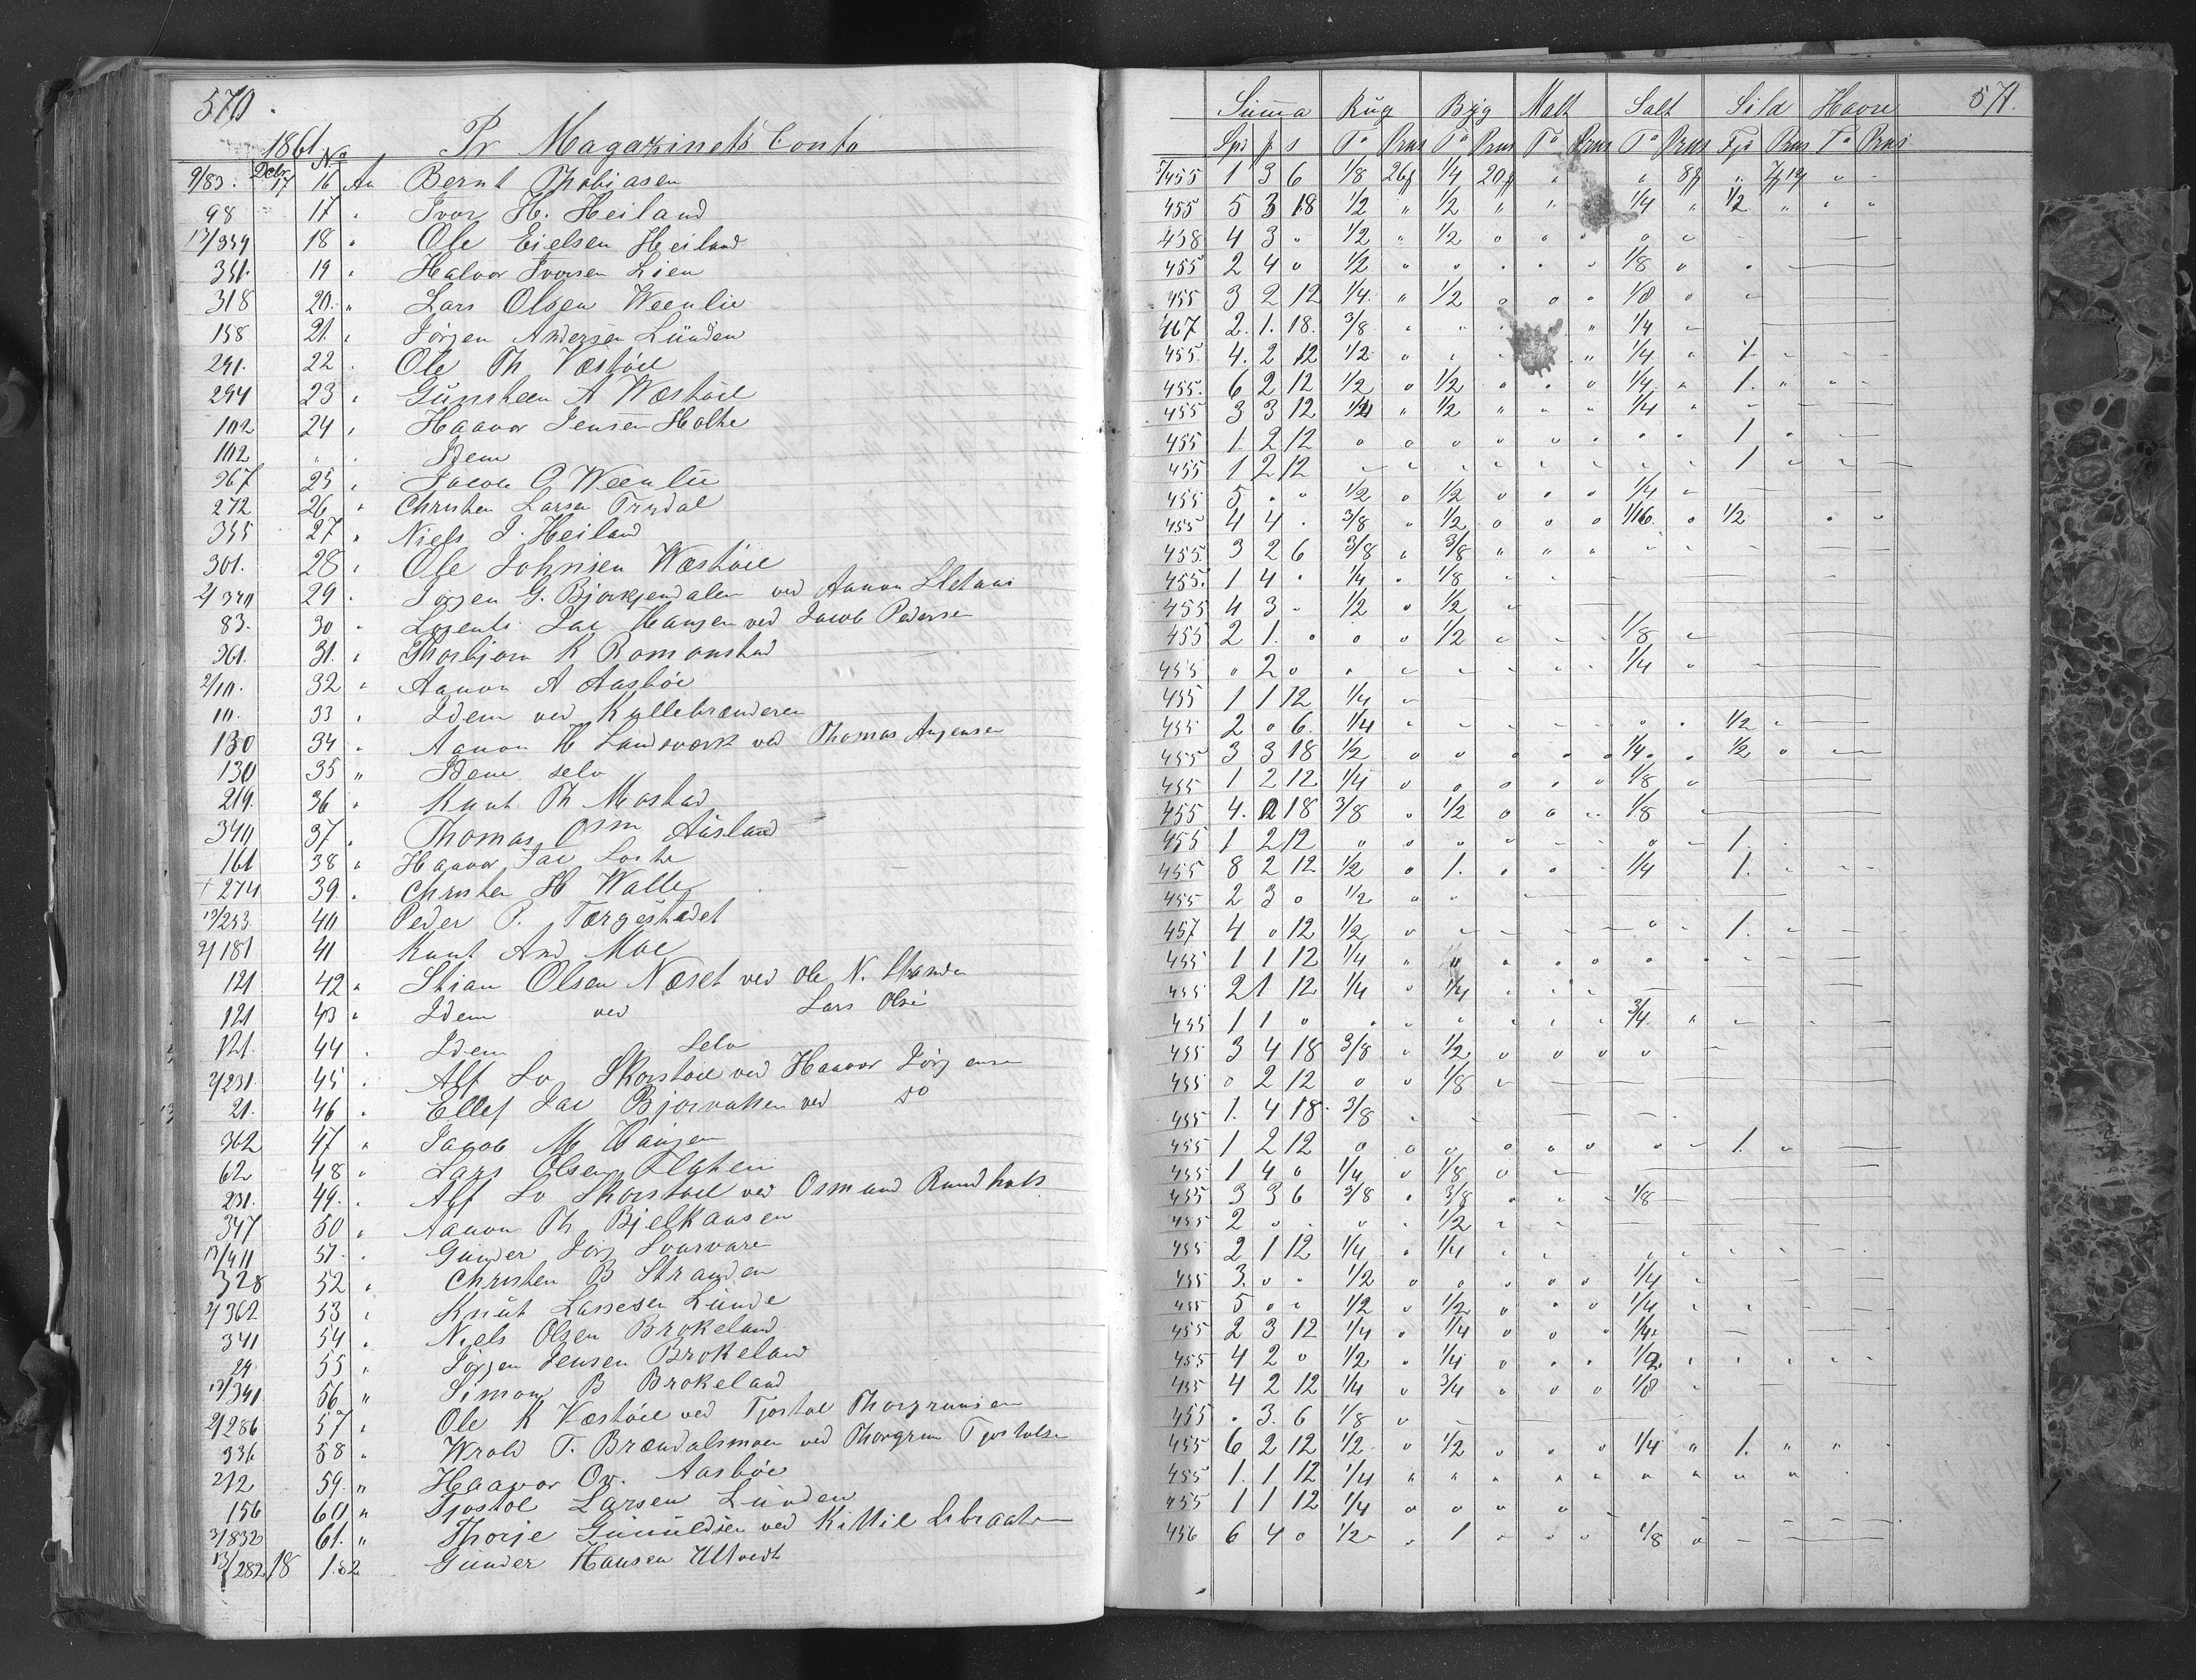 570.
1861 Pr Magazinets Conto
Decbr No
9/83. 17 16 An Bernt Thobiasen
98 17 " Ivor H. Heiland
13/359 18 " Ole Eielsen Heiland
351. 19 " Halvor Iversen Lien
318 20. " Lars Olsen Weenlie
158 21. " Jörgen Andersen Lünden
291. 22 " Ole Th Væstöil
294 23 " Günsteen A Wæstöil
102 24 " Haavor Jensen Holthe
102 " " Idem
367 25 " Jacob O Weenlie
272 26 " Christen Larsen
355 27 " Niels J. Heiland
301. 28 " Ole Johnsen Wæstöil
2/370 29 " Jörgen G. Bjorkjendalen ved Aanon
83. 30 " Jac Hansen ved Jacob Pedersen
361. 31. " Thorbjörn K Romonstad
2/10. 32 " Aanon A Aasböe
10. 33 " Idem ved Kullebrænderen
130 34 " Aanon H Landsverk ved Thomas
130 35 " Idem selv
219. 36 " Knut Th Mostad
340 37 " Thomas Osm Ausland
161 38 " Haavor Jac
+ 274 39. " Christen H Walle
13/253 40 Peder P. Torgestedet
2/181 41 Knut And Moe
121 42 " Stian Olsen Næset ved Ole N. Stranden
121 43 " Idem ved Lars Olsen
121. 44 " Idem Selv
2/231. 45 " Alf Lo Skorstöil ved Haavor Jörgensen
21. 46 " Ellef Jac Bjorvatten ved do
362 47 " Jacob M Hansen
62 48 " Lars Olsen
231. 49. " Alf Lo Skorstöil ved Osmund Rundholt
347 50 " Aanon Th Bjelkaasen
13/411 51. " Gunder Jörg
328 52 " Christen B Stranden
2/362 53 " Knüt Lassesen Lünde
341 54 " Niels Olsen Brokeland
29 55 " Jörgen Jensen Brokeland
13/341 56 " Simon B Brokeland
2/286 57 " Ole K Væstöil ved Tjostol Thorgrimsen
336 58 " Wrold T. Brændalsmoen ved Thorgrim Tjostolsen
212 59. " Haavor Ov. Aasböe
156 60 " Tjostol Larsen Lünden
3/832 61. " Thorje Günüldsen ved Kittil
13/282 18 1.62 Gunder Hansen Ultvedt
571.
Summa Rüg Byg Malt Salt Sild Havre
Spd p s To Prns To Prns To Prns To Prns Fjr Prns To Prns
455 1 3 6 1/8 26 1/4 20 " " 8 "
455 5 3 18 1/2 " 1/2 " " 1/4 " 1/2 " " "
458 4 3 " 1/2 " 1/2
455 2 4 0 1/2 " " " " " 1/8
455 3 2 12 1/4 " 1/2 " " " 1/8
467 2. 1. 18. 3/8 " " " " 1/4
455. 4. 2 12 1/2 " " " " 1/4 " 1
455. 6 2 12 1/2 " 1/2 " " " 1/4 " 1. " " "
455 3 3 12 " 1/2 " " " 1/4
455 1. 2 12 " " " " " " " " 1
455 1 2 12 " " " " " " " " 1
455 5 " " 1/2 " 1/2 " " " 1/4
455 4 4 . 3/8 " 1/2 " " " 1/16. " 1/2 " "
455. 3 2 6 3/8 " 3/8 " " "
455. 1 4 " 1/4 " 1/8
455 4 3 " 1/2 " 1/2
455 2 1. " " " 1/2 " " " 1/8
455 " 2 " " " " " " " 1/4
455 1 1 12 1/4
455 2 0 6. 1/4 " " " " " " " 1/2
455 3 3 18 1/2 " " " " " 1/4 " 1/2
455 1 2 12 1/4 " " " " " 1/8
455 4. 2 18 3/8 " 1/2 " " " 1/8
455 1 2 12 " " " " " " " " 1.
455 8 2 12 1/2 " 1. " " " 1/4 " 1.
455 2 3 0 1/2
457 4 0 12 1/2 " " " " " " " 1.
455 1 1 12 1/4
455 2 1 12 1/4 " 1/4
455 1 1 0 " " " " " " 3/4
455 3 4 18 3/8 " 1/2
455 0 2 12 " " 1/8
455 1. 4 18 3/8
455 1 2 12 " " " " " " " " 1.
455 1 4 0 1/4 " 1/8
455 3 3 6 3/8 " 3/8 " " " 1/8
455 2 " " " " 1/2
455 2 1 12 1/4 " 1/4
455 3. " " 1/2 " " " " " 1/4
455 5 " " 1/2 " 1/2 " " " 1/4
455 2 3 12 1/4 " 1/4 " " " 1/4
455 4 2 0 1/2 " 1/4 " " " 1/2
455 4 2 12 1/4 " 3/4 " " " 1/8
455 " 3. 6 1/8
455 6 2 12 1/2 " 1/2 " " " 1/4 " 1. " "
455 1. 1 12 1/4
455 1 1 12 1/4
456 6 4 0 1/2 " 1 " " " 1/8